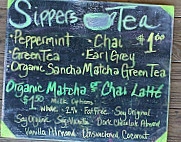 Sippers Tea
•Peppermint •Chai $1.00
Green Tea •Earl Grey
Organic Sancha Matcha Green Tea
Organic Matcha & Chai Latté
$1.50 Milk Options:
Whole 2% Fat Free Soy Original
Soy Organic Soy Vanilla Dark Chocolate Almond
Vanilla Almond Unsweetened Coconut